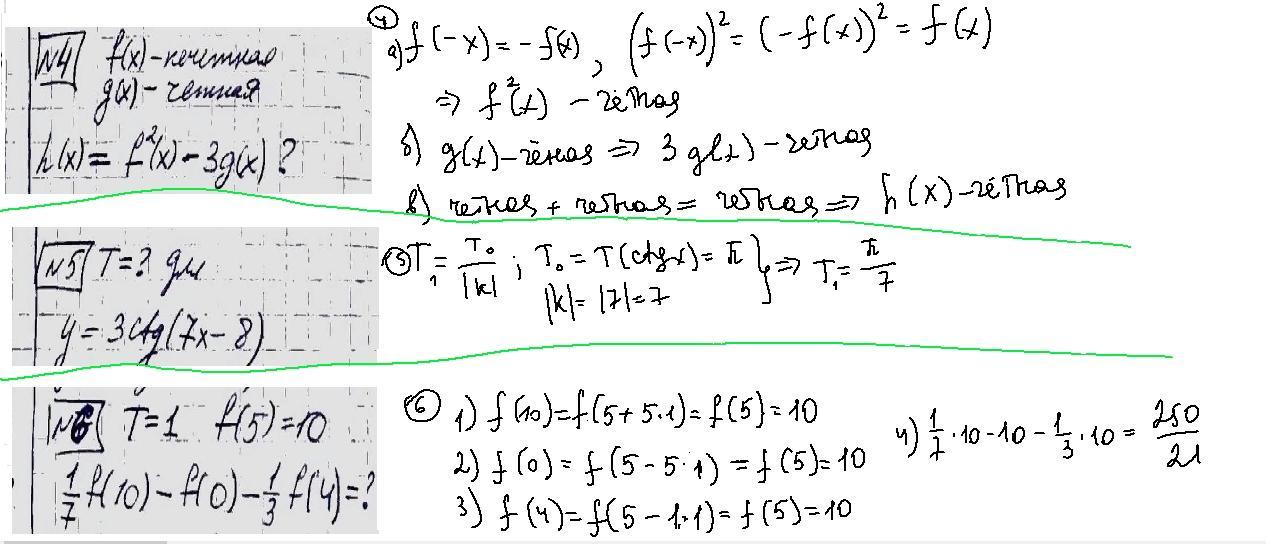 №4 f(x) - нечетная
g(x) - четная
h(x) = f²(x) - 3g(x) ?
④
а) f(-x) = -f(x), (f(-x))² = (-f(x))² = f(x)
⇒ f²(x) - чётная
б) g(x) - чёная ⇒ 3g(x) - четная
в) четная + четная = четная ⇒ h(x) - чётная
№5 T=? для
y = 3ctg(7x - 8)
⑤ T₁ = T₀/|k| ; T₀ = T(ctgx) = π } ⇒ T₁ = π/7
|k| = |7| = 7
№6 T=1 f(5)=10
1/7 f(10) - f(0) - 1/3 f(4) = ?
⑥ 1) f(10) = f(5+5·1) = f(5) = 10
2) f(0) = f(5-5·1) = f(5) = 10
3) f(4) = f(5-1·1) = f(5) = 10
4) 1/7 · 10 - 10 - 1/3 · 10 = 250/21